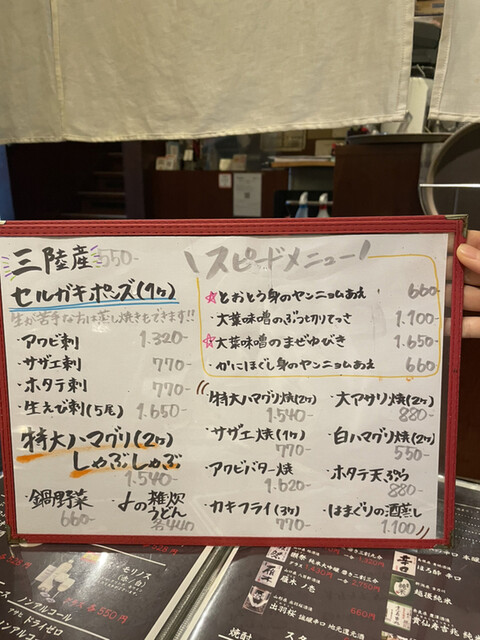 三陸産 550-
セルガキポンズ(1ヶ)
生が苦手な方は蒸し焼きもできます!!
アワビ刺 1.320-
サザエ刺 770-
ホタテ刺 770-
生えび刺(5尾) 1.650-
特大ハマグリ(2ヶ)
しゃぶしゃぶ
1.540-
・鍋用野菜
660-
・〆の雑炊
うどん
各440
\スピードメニュー/
☆とおとう身のヤンニョムあえ 660-
・大葉味噌のぶっ切りてっさ 1.100-
☆大葉味噌のまぜゆびき 1.650-
・かにほぐし身のヤンニョムあえ 660
・特大ハマグリ焼(2ヶ)
1.540-
・大アサリ焼(2ヶ)
880-
・サザエ焼(1ヶ)
770-
・白ハマグリ焼(2ヶ)
550-
・アワビバター焼
1.620-
・ホタテ天ぷら
880-
・カキフライ(3ヶ)
770-
・はまぐりの酒蒸し
1.100
モリノス
各550円
ノンアルコール
ドライゼロ
ノンアルコール
出羽桜
660円
ほろ酔
越後純米
焼酎